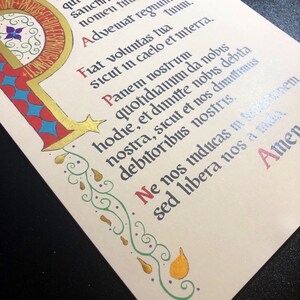 qui
sanctific
nomen
Adveniat regnum
tuum.
Fiat voluntas tua
sicut in caelo et in terra.
Panem nostrum
quotidianum da nobis
hodie, et dimitte nobis debita
nostra, sicut et nos dimittimus
debitoribus nostris.
Ne nos inducas in
sed libera nos a malo.
Amen